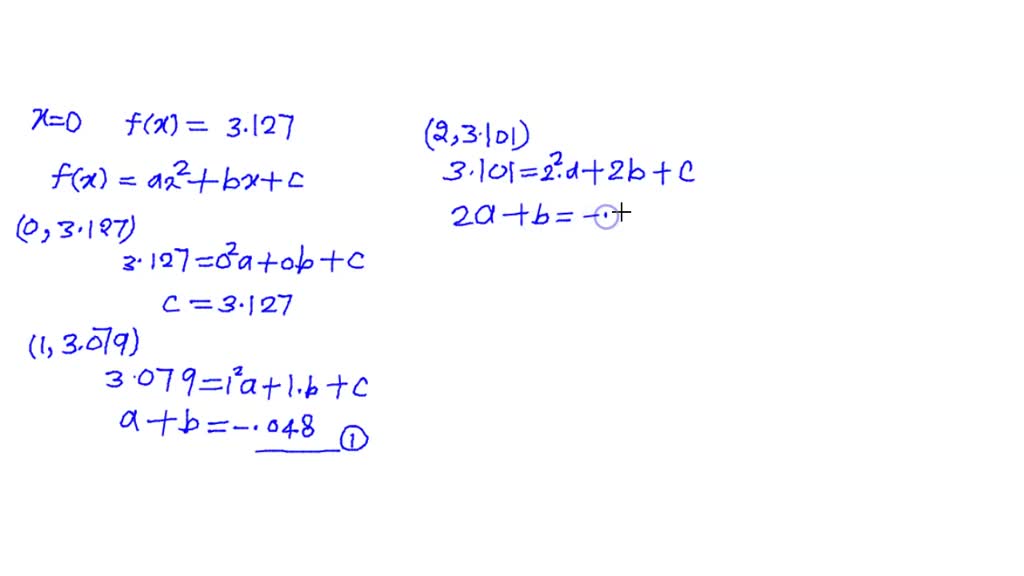 x=0 f(x) = 3.127
f(x) = ax²+bx+c
(0, 3.127)
3.127=0²a+0b+c
c = 3.127
(1, 3.079)
3.079=1²a+1.b+c
a+b=-.048 ①
(2,3.101)
3.101=2².a+2b+c
2a+b=-.